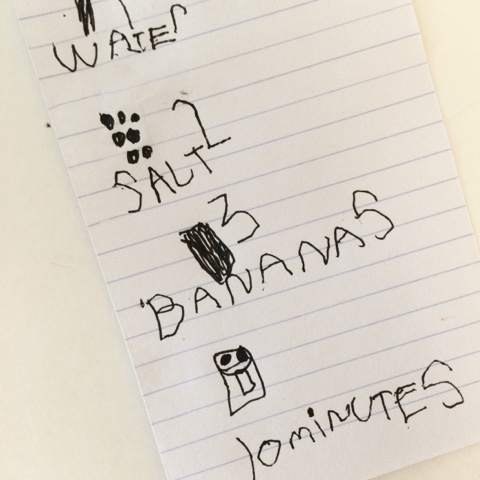 WATER
2
SALT
3
BANANAS
10 MINUTES